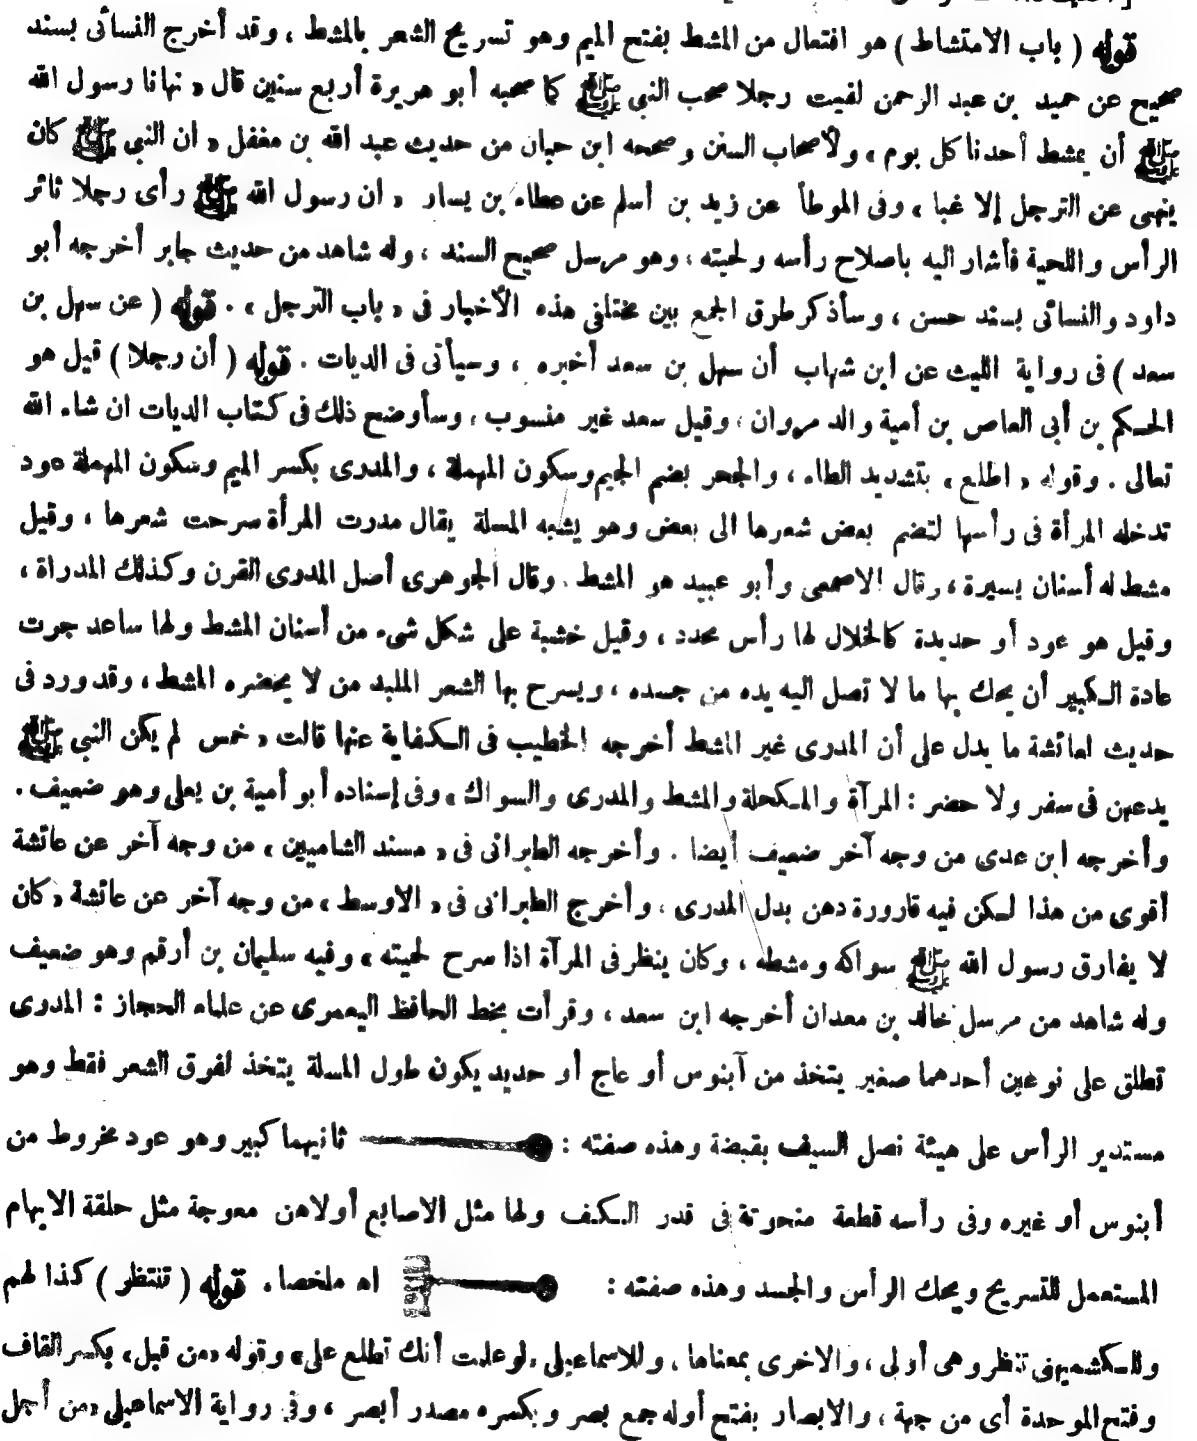 قوله ( باب الامتشاط ) هو افتعال من المشط بفتح الميم وهو تسريح الشعر بالمشط ، وقد أخرج النسائى بسند
صحيح عن حميد بن عبد الرحمن لقيت رجلا صحب النبى ﷺ كما صحبه أبو هريرة أربع سنين قال « نهانا رسول الله
ﷺ أن يمشط أحدنا كل يوم ، ولأصحاب السنن وصححه ابن حبان من حديث عبد الله بن مغفل « ان النبى ﷺ كان
ينهى عن الترجل إلا غبا ، وفى الموطأ عن زيد بن أسلم عن عطاء بن يسار « ان رسول الله ﷺ رأى رجلا ثائر
الرأس واللحية فأشار اليه باصلاح رأسه ولحيته ، وهو مرسل صحيح السند ، وله شاهد من حديث جابر أخرجه أبو
داود والنسائى بسند حسن ، وسأذكر طرق الجمع بين مختلفى هذه الأخبار فى « باب الترجل » . قوله ( عن سهل بن
سعد ) فى رواية الليث عن ابن شهاب أن سهل بن سعد أخبره ، وسيأتى فى الديات . قوله ( أن رجلا ) قيل هو
الحكم بن أبى العاص بن أمية والد مروان ، وقيل سعد غير منسوب ، وسأوضح ذلك فى كتاب الديات ان شاء الله
تعالى . وقوله « اطلع » بتشديد الطاء ، والجحر بضم الجيم وسكون المهملة ، والمدرى بكسر الميم وسكون المهملة عود
تدخله المرأة فى رأسها لتضم بعض شعرها الى بعض وهو يشبه المسلة يقال مدرت المرأة سرحت شعرها ، وقيل
مشط له أسنان يسيرة ، وقال الاصمعى وأبو عبيد هو المشط . وقال الجوهرى أصل المدرى القرن وكذلك المدراة ،
وقيل هو عود أو حديدة كالخلال لها رأس محدد ، وقيل خشبة على شكل شىء من أسنان المشط ولها ساعد جرت
عادة الكبير أن يحك بها ما لا تصل اليه يده من جسده ، ويسرح بها الشعر الملبد من لا يحضره المشط ، وقد ورد فى
حديث لعائشة ما يدل على أن المدرى غير المشط أخرجه الخطيب فى الكفاية عنها قالت « خمس لم يكن النبى ﷺ
يدعهن فى سفر ولا حضر : المرآة والمكحلة والمشط والمدرى والسواك » وفى إسناده أبو أمية بن يعلى وهو ضعيف .
وأخرجه ابن عدى من وجه آخر ضعيف أيضا . وأخرجه الطبرانى فى « مسند الشاميين » من وجه آخر عن عائشة
أقوى من هذا لكن فيه قارورة دهن بدل المدرى ، وأخرج الطبرانى فى « الاوسط » من وجه آخر عن عائشة « كان
لا يفارق رسول الله ﷺ سواكه ومشطه ، وكان ينظر فى المرآة اذا سرح لحيته » وفيه سليمان بن أرقم وهو ضعيف
وله شاهد من مرسل خالد بن معدان أخرجه ابن سعد ، وقرأت بخط الحافظ اليعمرى عن علماء الحجاز : المدرى
تطلق على نوعين أحدهما صغير يتخذ من آبنوس أو عاج أو حديد يكون طول المسلة يتخذ لفرق الشعر فقط وهو
مستدير الرأس على هيئة نصل السيف بقبضة وهذه صفته : ثانيهما كبير وهو عود مخروط من
أبنوس أو غيره وفى رأسه قطعة منحوتة فى قدر الكف ولها مثل الاصابع أولاهن معوجة مثل حلقة الابهام
المستعمل للتسريح ويحك الرأس والجسد وهذه صفته : اه ملخصا . قوله ( تنتظر ) كذا لهم
وللكشميهنى تنظر وهى أولى ، والاخرى بمعناها ، وللاسماعيلى لو علمت أنك تطلع على » وقوله « من قبل » بكسر القاف
وفتح الموحدة أى من جهة ، والابصار بفتح أوله جمع بصر وبكسره مصدر أبصر ، وفى رواية الاسماعيلى « من أجل